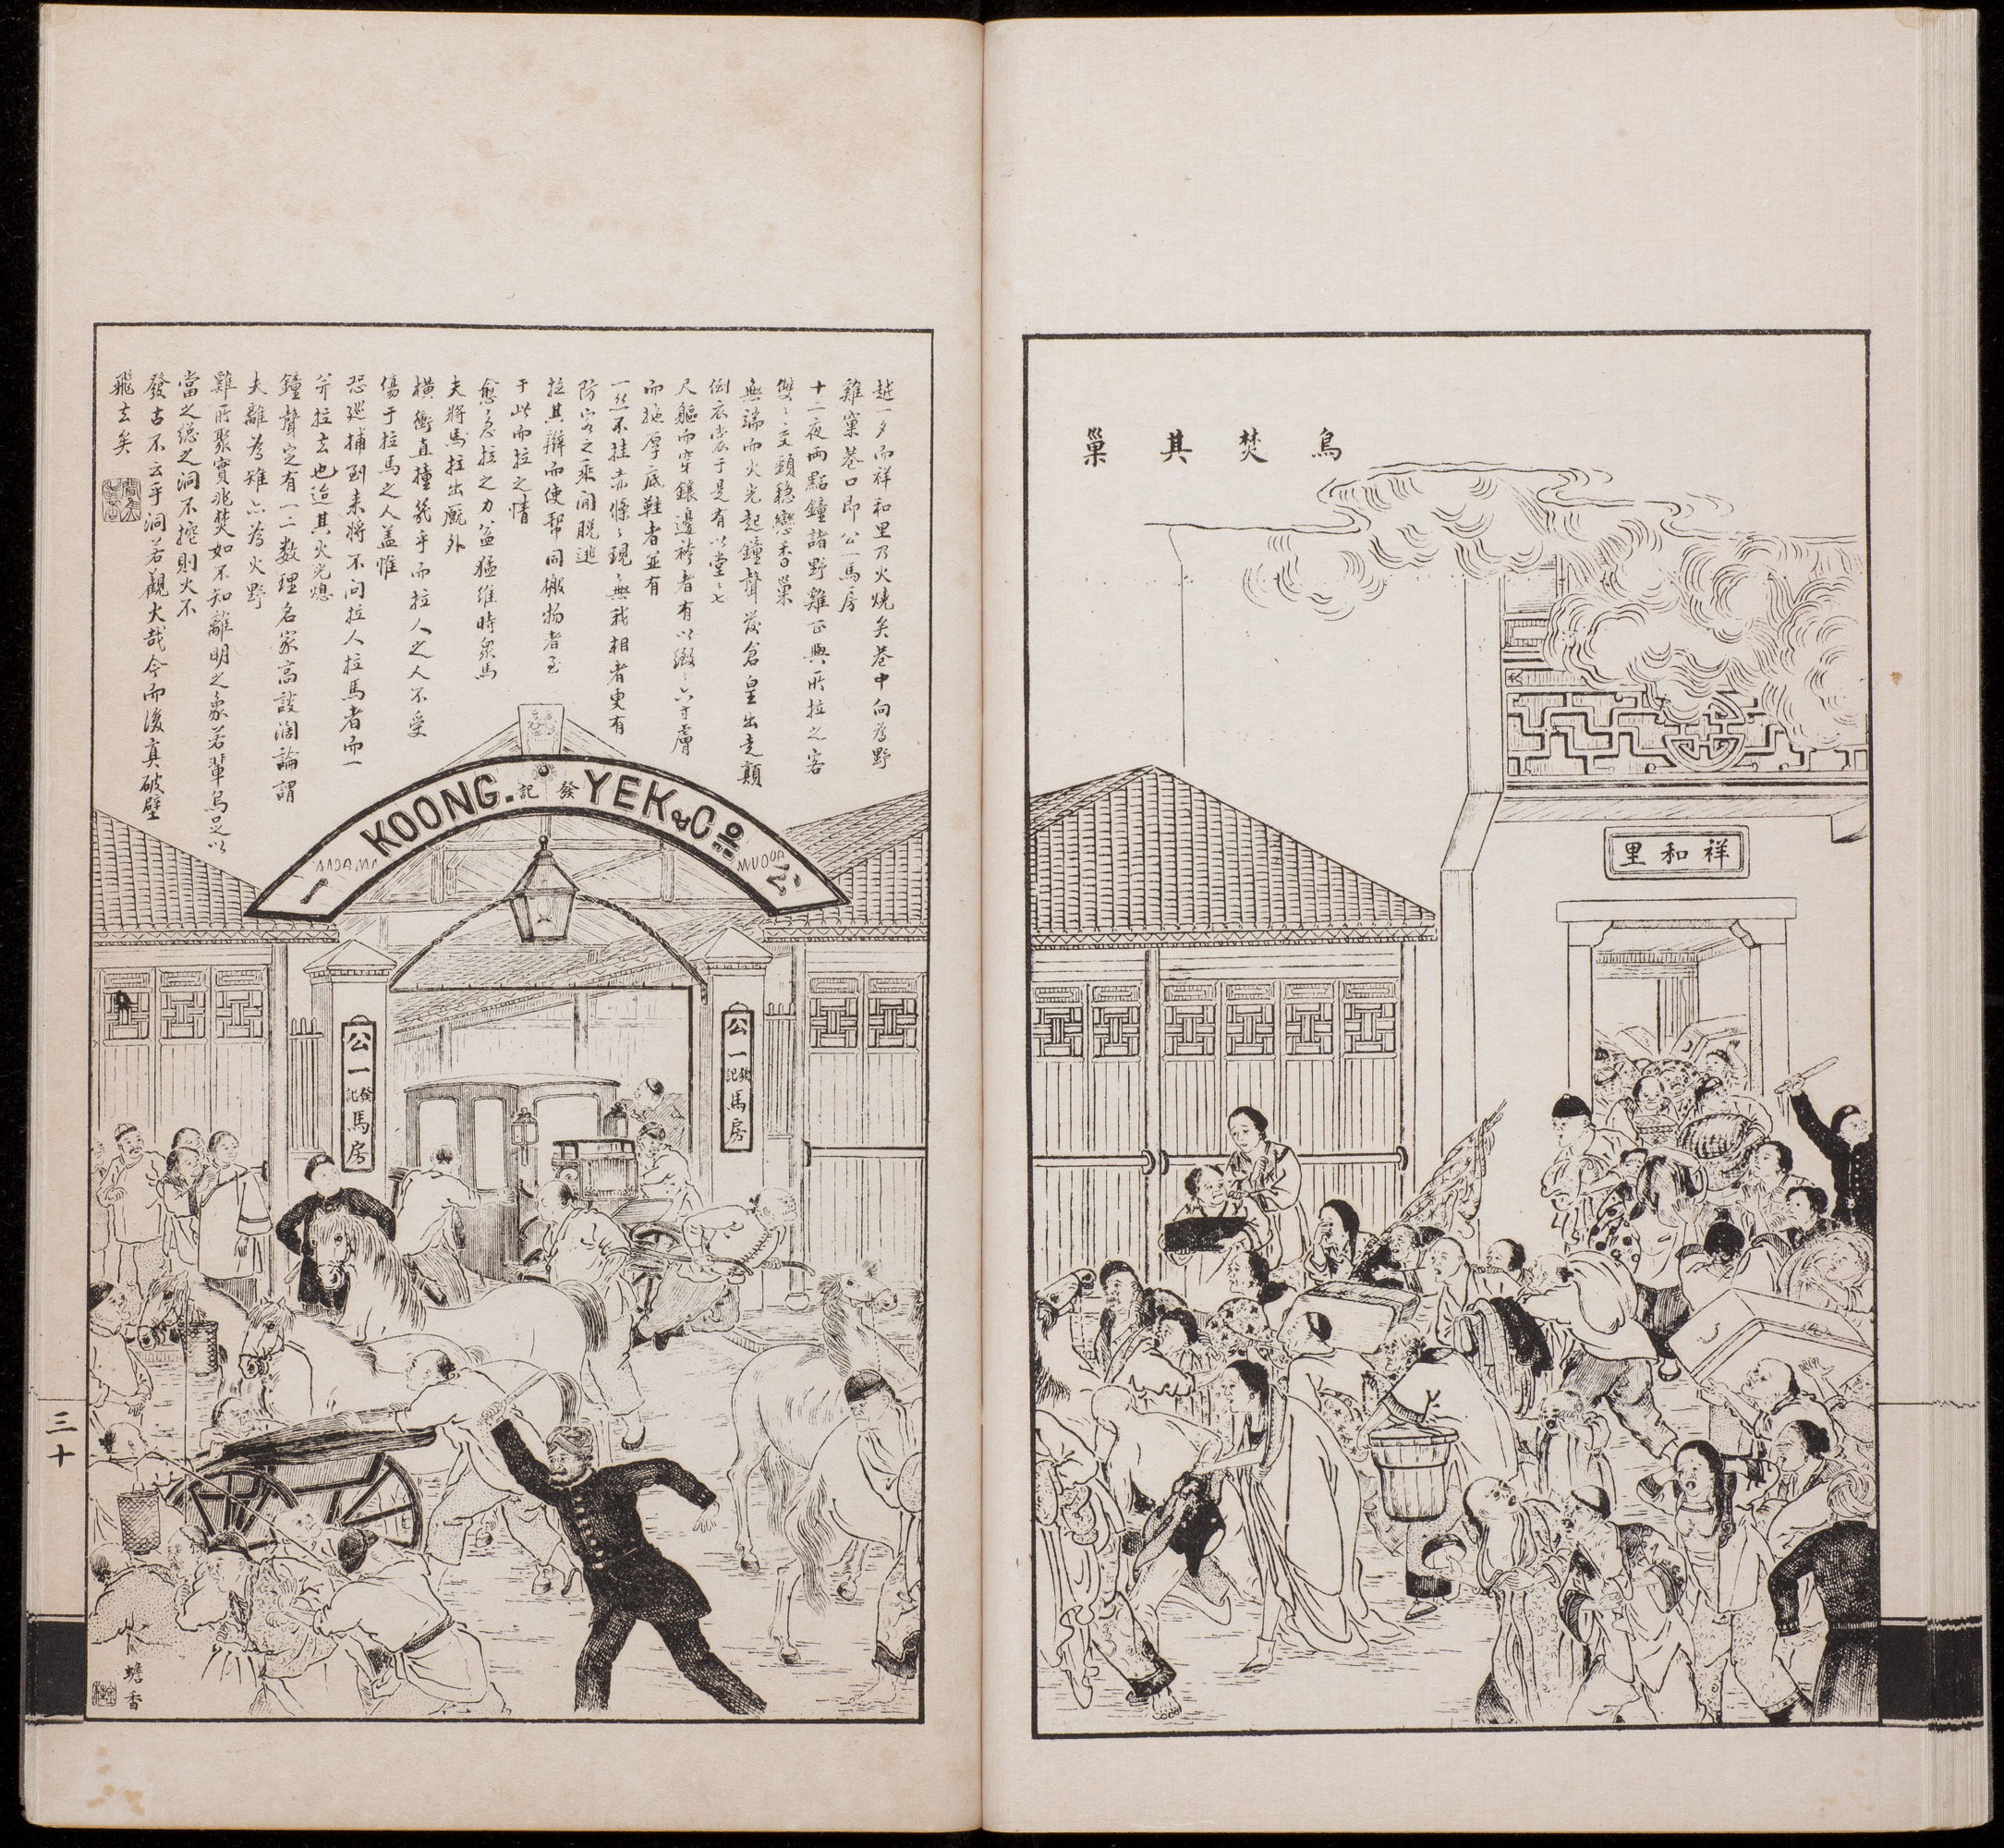 鳥焚其巢
祥和里
越一夕而祥和里乃火燒矣巷中向為野
雞窠巷口即公一馬房
十二夜兩點鐘諸野雞正與所拉之客
雙〻交頸穩戀香巢
無端而火光起鐘聲發倉皇出走顛
倒衣裳于是有以堂〻七
尺軀而穿鑲邊袴者有以纖〻六寸膚
而拖厚底鞋者並有
一絲不挂赤條〻現無我相者更有
防客之乘間脫逃
拉其辮而使帮同搬物者至
于此而拉之情
愈急拉之力益猛維時眾馬
夫將馬拉出廐外
橫衝直撞幾乎而拉人之人不受
傷于拉馬之人蓋惟
恐巡捕到來將不問拉人拉馬者而一
并拉去也迨其火光熄
鐘聲定有一二数理名家高談濶論謂
夫離為雉亦為火野
雞所聚實兆焚如不知離明之象若輩烏足以
當之總之洞不挖則火不
發古不云乎洞若觀火哉今而後真破壁
飛去矣
KOONG. 記發 YEK & Co
公一
公一發記馬房
公一發記馬房
三十
蟾香